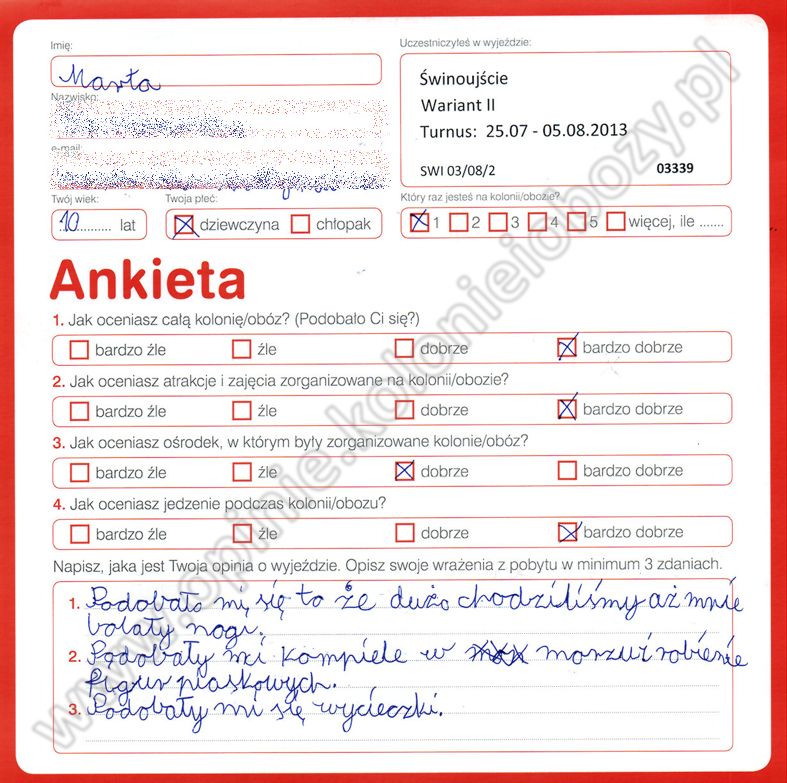 Imię:
Marta
Nazwisko:
e-mail:
Twój wiek:
10 lat
Twoja płeć:
dziewczyna chłopak
Uczestniczyłeś w wyjeździe:
Świnoujście
Wariant II
Turnus: 25.07 - 05.08.2013
SWI 03/08/2 03339
Który raz jesteś na kolonii/obozie?
1 2 3 4 5 więcej, ile .......
Ankieta
1. Jak oceniasz całą kolonię/obóz? (Podobało Ci się?)
bardzo źle źle dobrze bardzo dobrze
2. Jak oceniasz atrakcje i zajęcia zorganizowane na kolonii/obozie?
bardzo źle źle dobrze bardzo dobrze
3. Jak oceniasz ośrodek, w którym były zorganizowane kolonie/obóz?
bardzo źle źle dobrze bardzo dobrze
4. Jak oceniasz jedzenie podczas kolonii/obozu?
bardzo źle źle dobrze bardzo dobrze
Napisz, jaka jest Twoja opinia o wyjeździe. Opisz swoje wrażenia z pobytu w minimum 3 zdaniach.
1. Podobało mi się to że dużo chodziliśmy aż mnie
bolały nogi.
2. Podobały mi kompiele w morzu i robienie
figur piaskowych.
3. Podobały mi się wycieczki.
www.opinie.kolonieiobozy.pl